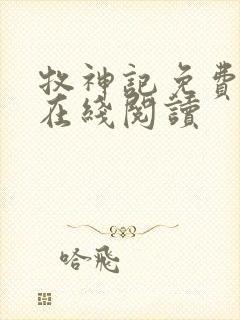 牧神記免費
在綫閱讀
哈飛